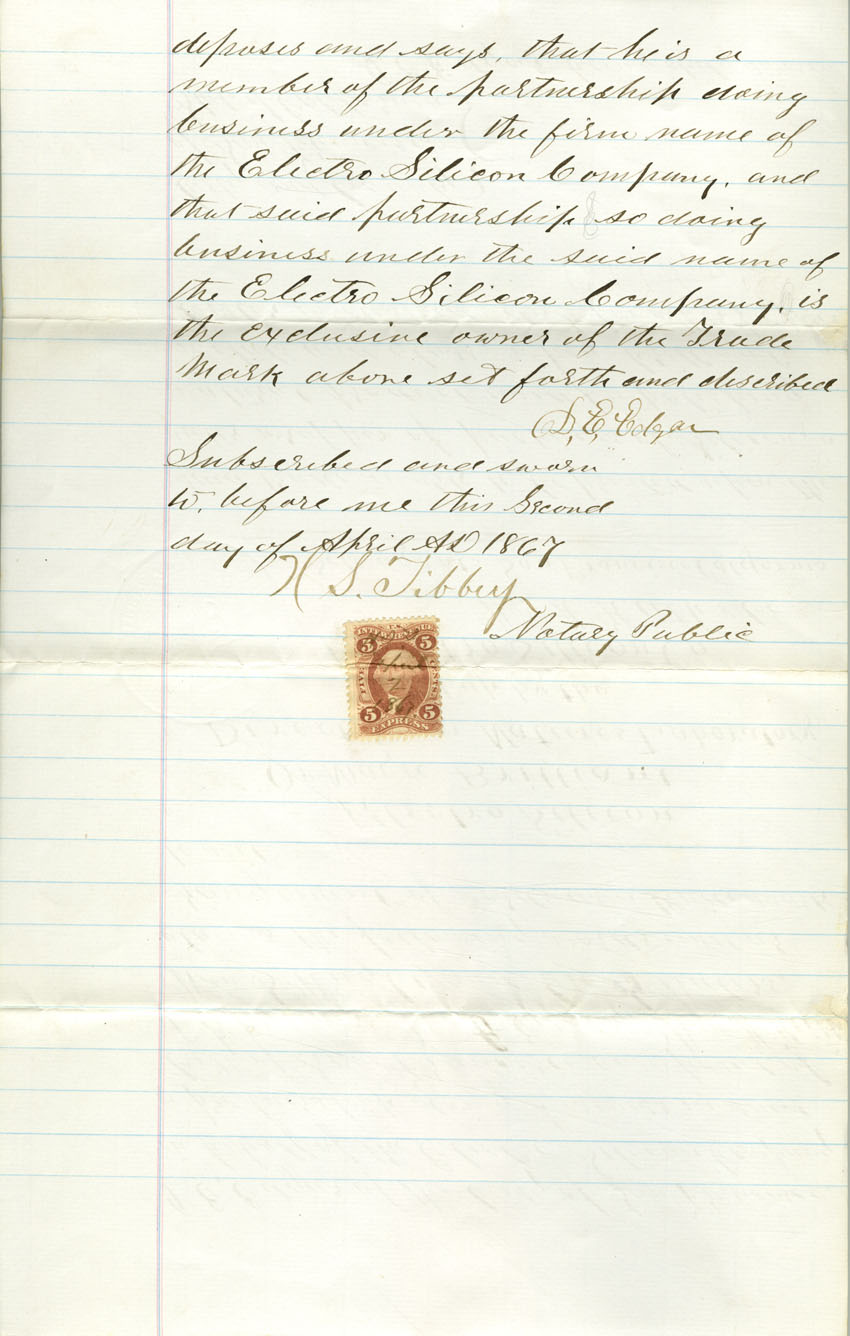 deposes and says, that he is a
member of the partnership doing
business under the firm name of
the Electro Silicon Company, and
that said partnership so doing
business under the said name of
the Electro Silicon Company, is
the exclusive owner of the Trade
Mark above set forth and described
D. E. Edgar
Subscribed and sworn
to, before me this Second
day of April AD 1867
H S. Tibbey
Notary Public
U.S.
INTER. REVENUE
5 5
FIVE CENTS
2
1867
5 5
EXPRESS